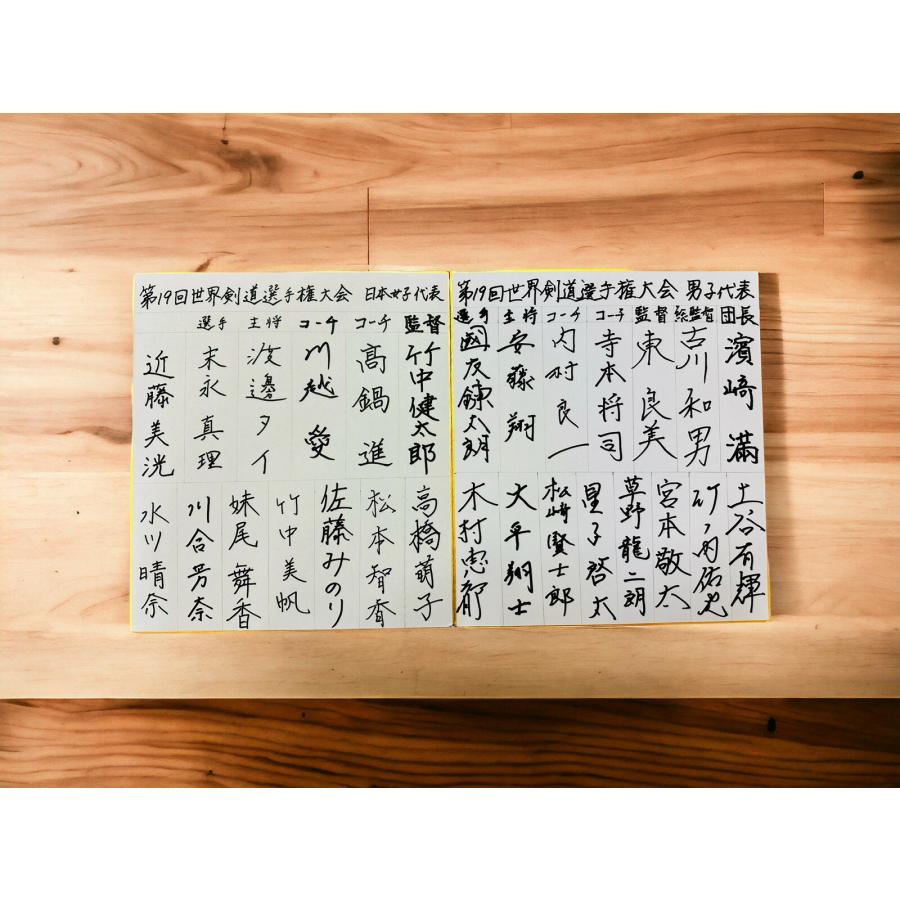 第19回世界剣道選手権大会 男子代表
団長 濱﨑 満
総監督 古川和男
監督 東 良美
コーチ 寺本将司
コーチ 内村良一
主将 安藤 翔
選手 國友鍊太朗
土谷有輝
竹ノ内佑也
宮本敬太
草野龍二朗
星子啓太
松﨑賢士郎
大平翔士
木村恵都
第19回世界剣道選手権大会 日本女子代表
監督 竹中健太郎
コーチ 髙鍋 進
コーチ 川越 愛
主将 渡邊タイ
選手 末永真理
近藤美洸
高橋萌子
松本智香
佐藤みのり
竹中美帆
妹尾舞香
川合芳奈
水川晴奈